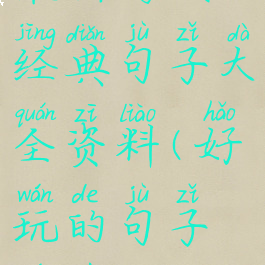 jīng diǎn jù zǐ dà
经典句子大
quán zī liào hǎo
全资料(好
wán de jù zǐ
玩的句子